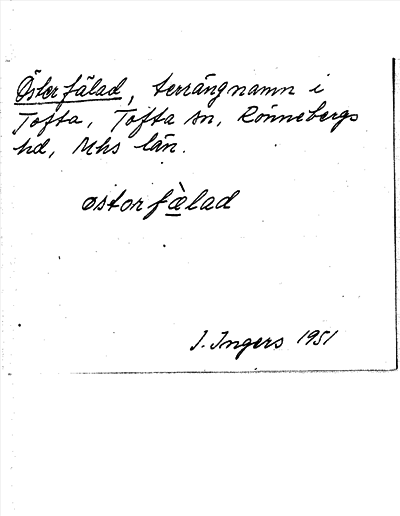 Österfälad, terrängnamn i
Tofta, Tofta sn, Rönnebergs
hd, Mhs län.
østorfælad
I. Ingers 1951